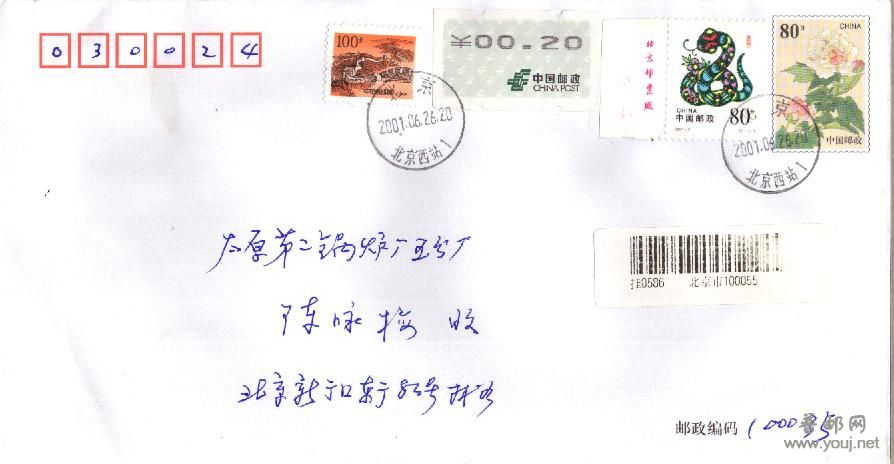 030024
100分
¥00.20
中国邮政
CHINA POST
北京邮票厂
CHINA
中国邮政 80分
80分 CHINA
中国邮政
京
2001.06.26.20
北京西站1
京
2001.06.26.20
北京西站1
太原第二锅炉厂五分厂
陈咏梅 收
挂0586 北京市100055
北京新
邮政编码 100035
普邮网
www.youj.net